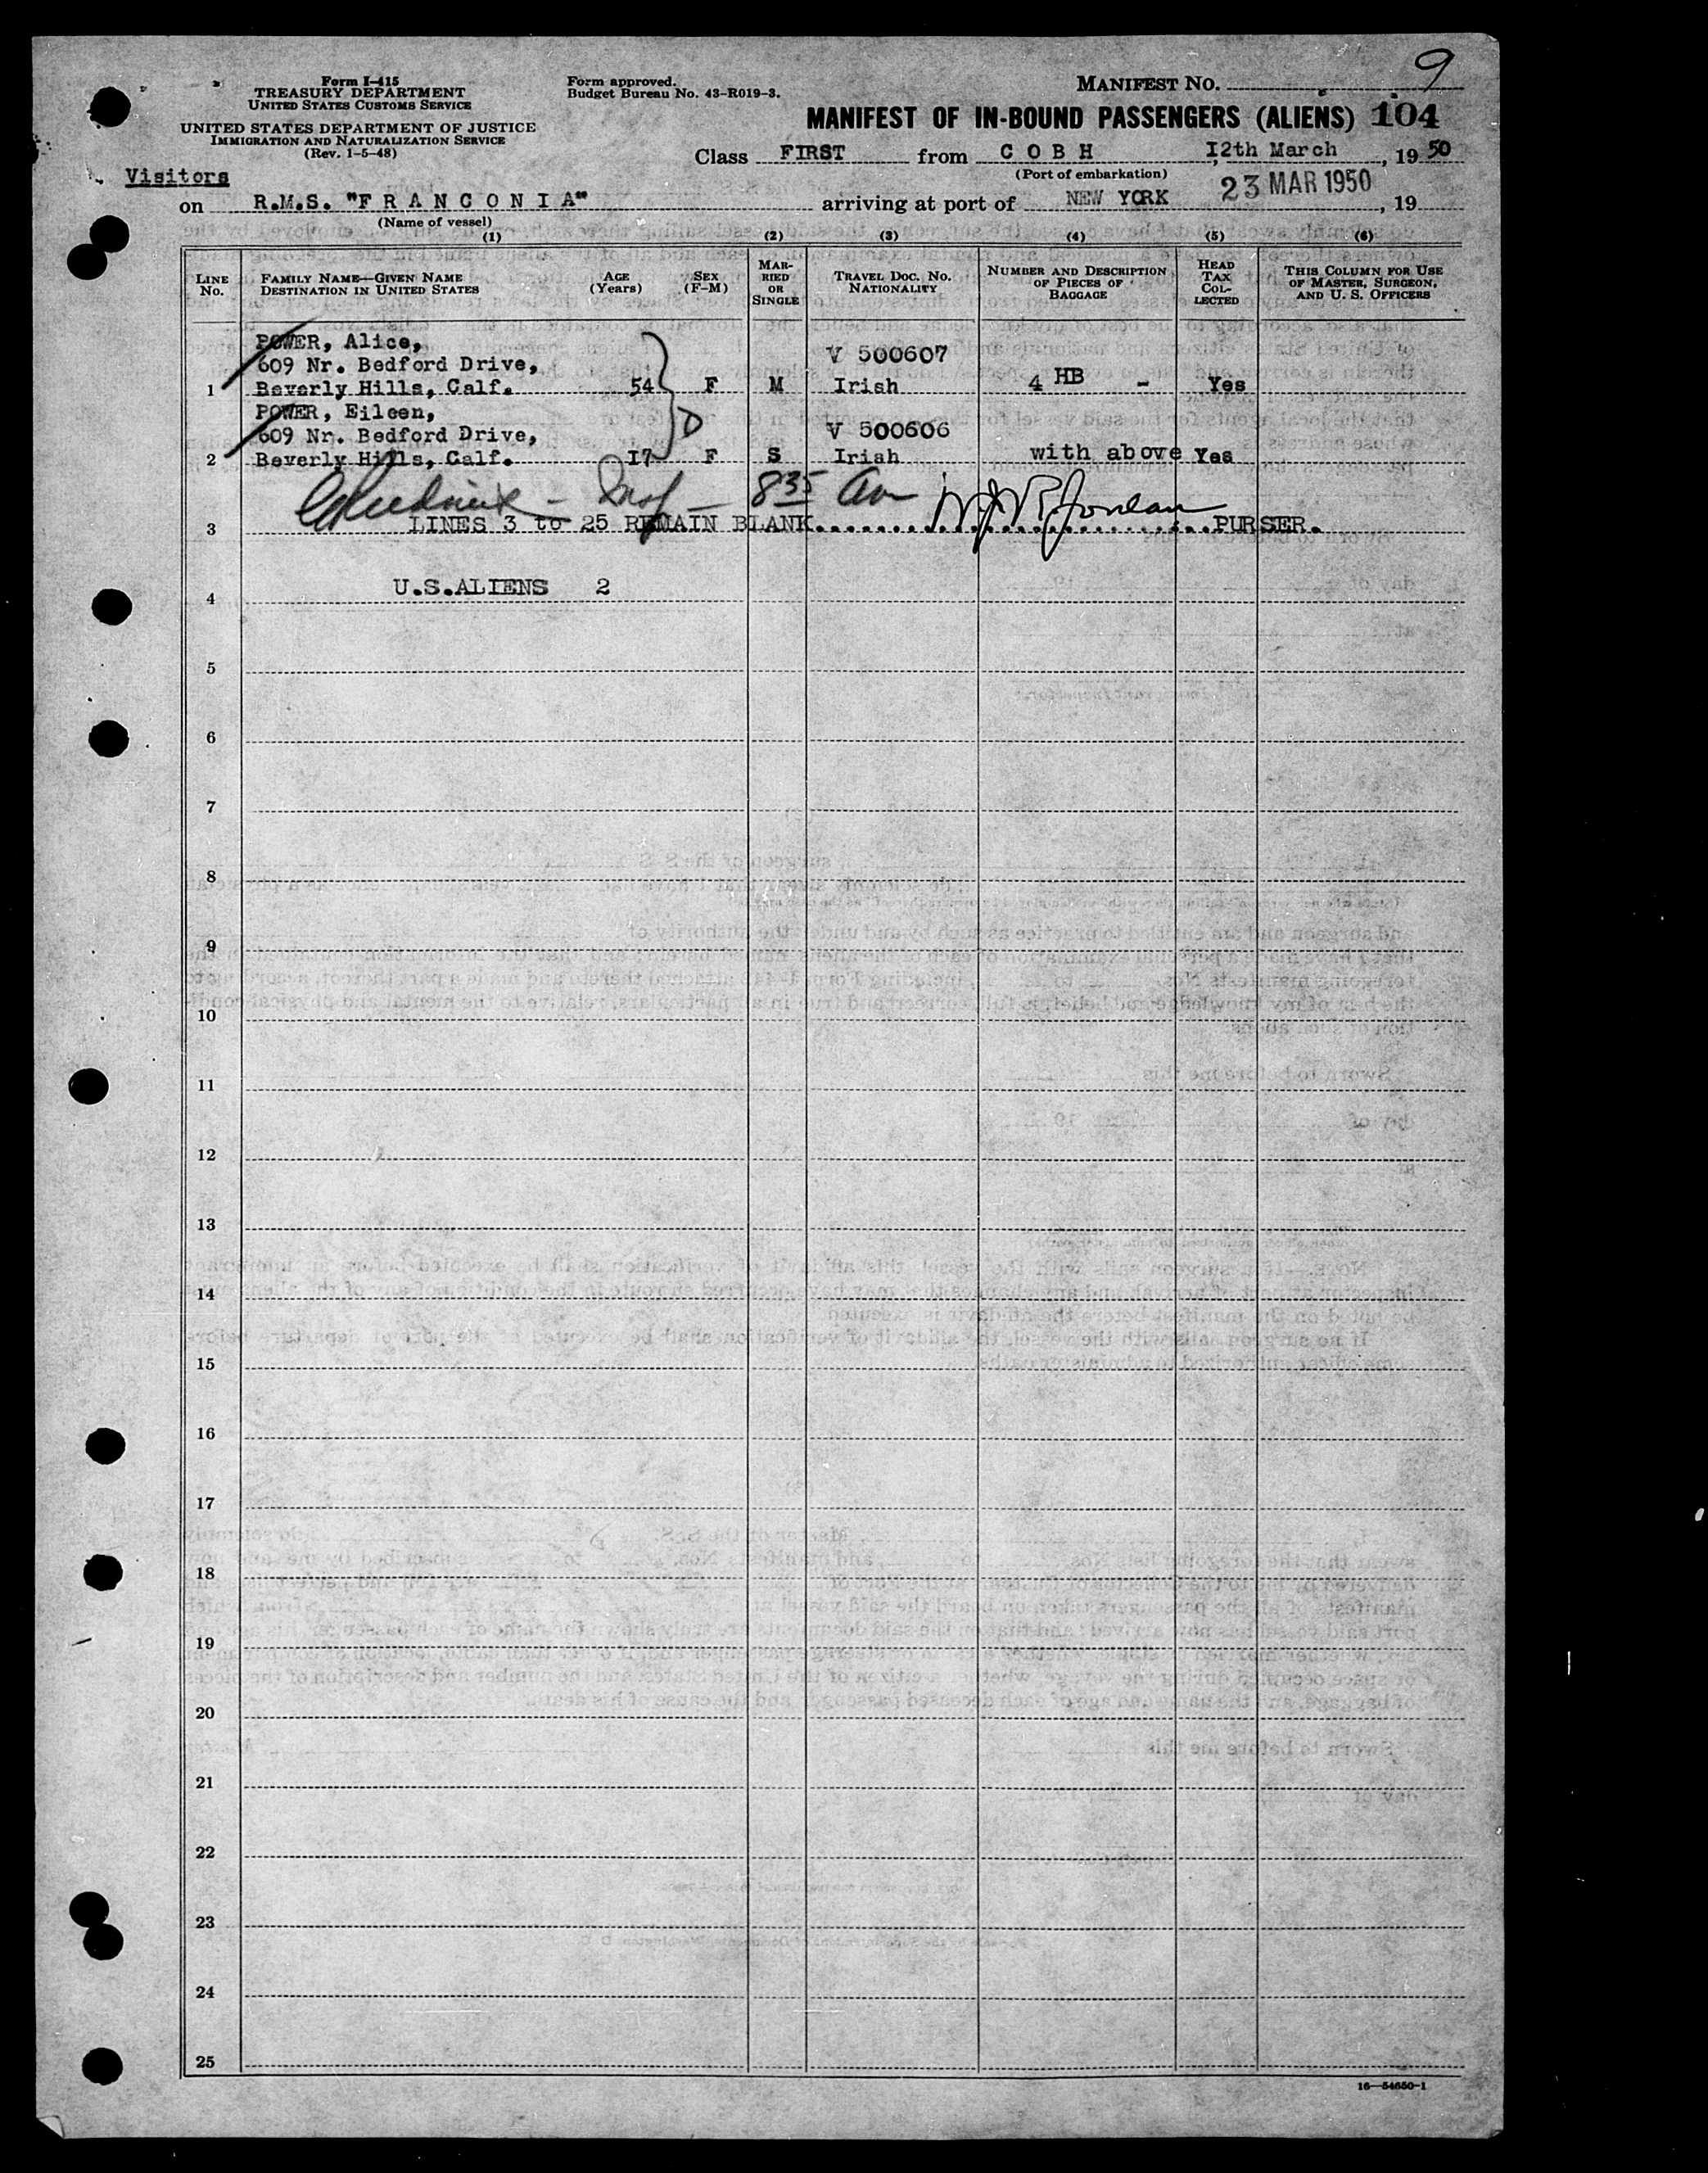 9
Form I-415
TREASURY DEPARTMENT
UNITED STATES CUSTOMS SERVICE
UNITED STATES DEPARTMENT OF JUSTICE
IMMIGRATION AND NATURALIZATION SERVICE
(Rev. 1-5-48)
Form approved.
Budget Bureau No. 43-R019-3.
MANIFEST NO.
MANIFEST OF IN-BOUND PASSENGERS (ALIENS) 104
Class FIRST from C O B H I2th March, 19 50
(Port of embarkation)
Visitors
23 MAR 1950
on R.M.S. "F R A N C O N I A" arriving at port of NEW YORK, 19
(Name of vessel)
(1) (2) (3) (4) (5) (6)
LINE No. FAMILY NAME—GIVEN NAME DESTINATION IN UNITED STATES AGE (Years) SEX (F-M) MARRIED OR SINGLE TRAVEL DOC. NO. NATIONALITY NUMBER AND DESCRIPTION OF PIECES OF BAGGAGE HEAD TAX COLLECTED THIS COLUMN FOR USE OF MASTER, SURGEON, AND U. S. OFFICERS
POWER, Alice,
609 Nr. Bedford Drive, V 500607
1 Beverly Hills, Calf. 54 F M Irish 4 HB - Yes
POWER, Eileen, D
609 Nr. Bedford Drive, V 500606
2 Beverly Hills, Calf. I7 F S Irish with above Yes
Insp 8 35 am
3 LINES 3 to 25 REMAIN BLANK. PURSER.
4 U.S.ALIENS 2
5
6
7
8
9
10
11
12
13
14
15
16
17
18
19
20
21
22
23
24
25
16—54650-1